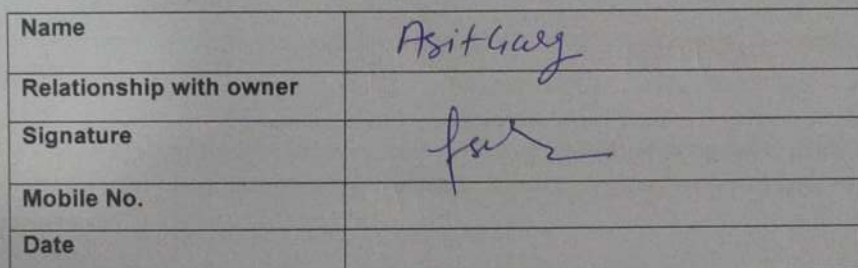 Name Asit Garg
Relationship with owner
Signature
Mobile No.
Date